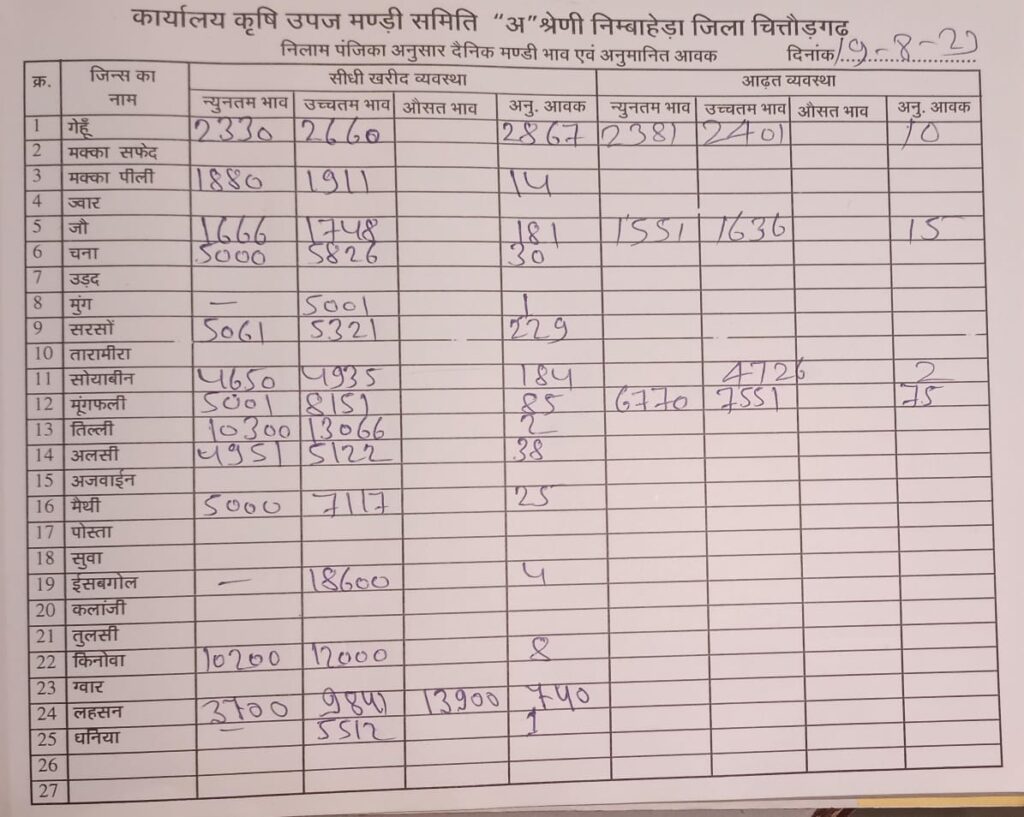 कार्यालय कृषि उपज मण्डी समिति “अ” श्रेणी निम्बाहेड़ा जिला चित्तौड़गढ़
निलाम पंजिका अनुसार दैनिक मण्डी भाव एवं अनुमानित आवक दिनांक
क्र. जिन्स का नाम सीधी खरीद व्यवस्था आढ़त व्यवस्था
न्युनतम भाव उच्चतम भाव औसत भाव अनु. आवक न्युनतम भाव उच्चतम भाव औसत भाव अनु. आवक
1 गेहूँ 2330 2660 2867 2381 2401 10
2 मक्का सफेद
3 मक्का पीली 1880 1911 14
4 ज्वार
5 जौ 1666 1748 181 1551 1636 15
6 चना 5000 5826 30
7 उड़द
8 मुंग — 5001 1
9 सरसों 5061 5321 229
10 तारामीरा
11 सोयाबीन 4650 4935 184 4726 2
12 मूंगफली 5001 8151 85 6770 7551 75
13 तिल्ली 10300 13066 2
14 अलसी 4951 5122 38
15 अजवाईन
16 मैथी 5000 7117 25
17 पोस्ता
18 सुवा
19 ईसबगोल — 18600 4
20 कलांजी
21 तुलसी
22 किनोवा 10200 12000 8
23 ग्वार
24 लहसन 3700 13900 740
25 धनिया 5512 1
26
27